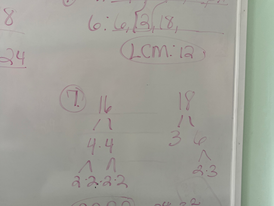 8
6: 6, 12, 18,
24
LCM: 12
7. 16 18
4·4 3 6
2·2·2·2 2·3